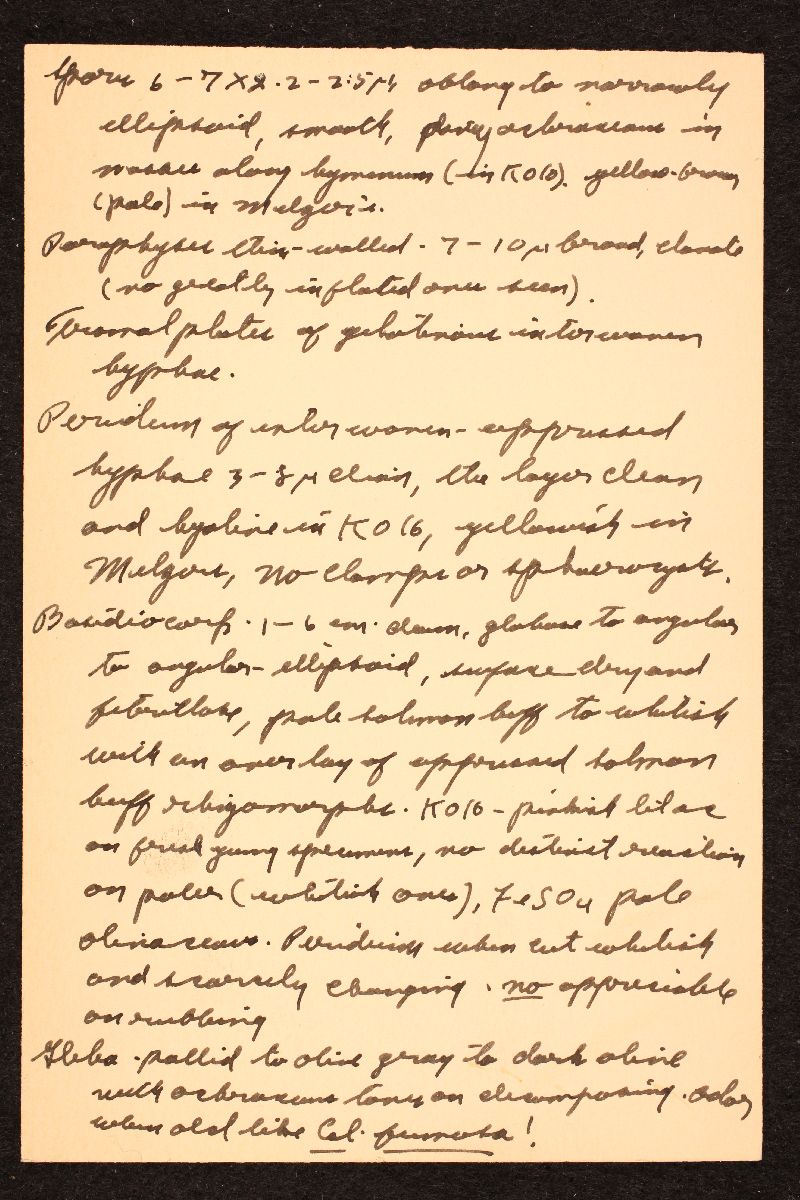 Spores 6-7 X 2.2-2.5 μ oblong to narrowly
ellipsoid, smooth, ochraceous in
masses along hymenium (in KOH). yellow-brown
(pale) in Melzer's.
Paraphyses thin-walled. 7-10 μ broad, clavate
(no greatly inflated ones seen).
Tramal plates of gelatinous interwoven
hyphae.
Peridium of interwoven-appressed
hyphae 3-8 μ diam, the layer clean
and hyaline in KOH, yellowish in
Melzers, no clamps or sphaerocysts.
Basidiocarp. 1-6 cm. diam, globose to angular
to angular-ellipsoid, surface dry and
fibrillose, pale salmon buff to whitish
with an over lay of appressed salmon
buff rhizomorphs. KOH - pinkish lilac
on fresh young specimens, no distinct reaction
on paler (whitish ones), FeSO4 pale
olivaceous. Peridium when cut whitish
and scarcely changing. no appreciable
on rubbing
Gleba. pallid to olive gray to dark olive
with ochraceous tones on decomposing. odor
when old like Cal. fumosa!